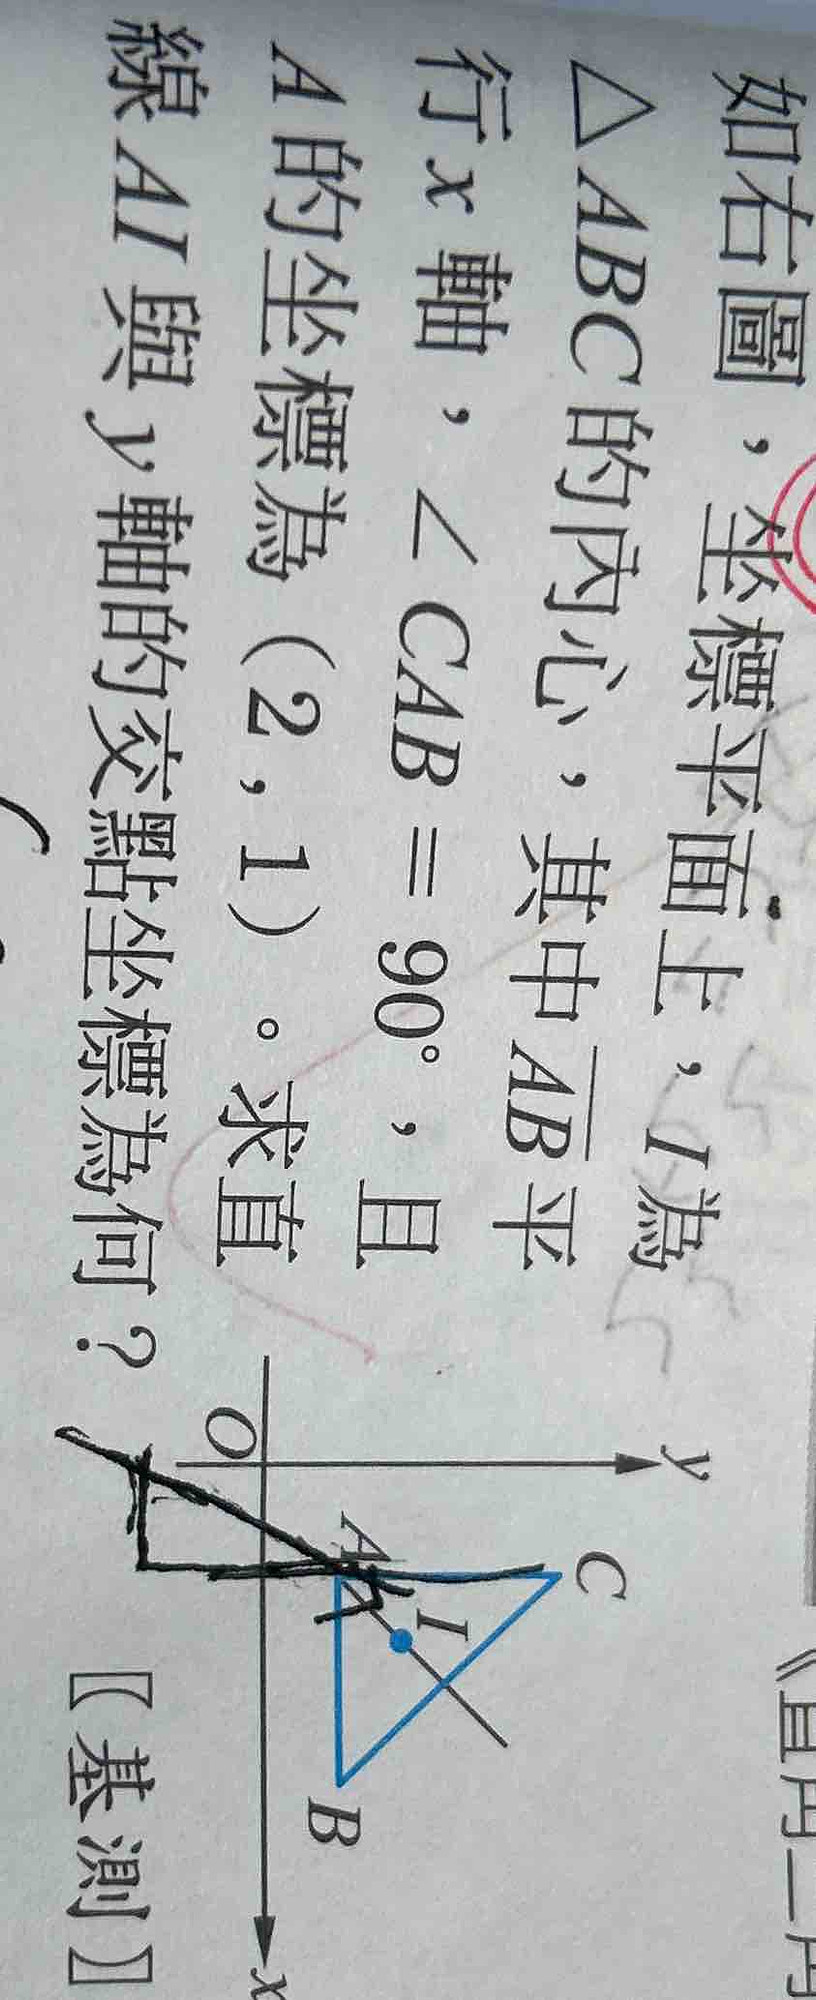 如右圖，坐標平面上，I為
△ABC的內心，其中AB平
行x軸，∠CAB=90°，且
A的坐標為(2,1)。求直
線AI與y軸的交點坐標為何？
【基測】
y
C
A
I
B
O
x